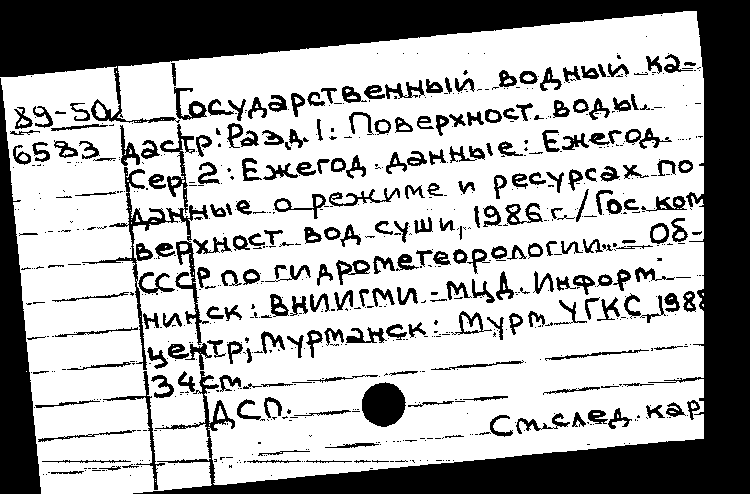 89-50к Государственный водный ка-
6583 дастр: Разд. 1: Поверхност. воды.
Сер. 2: Ежегод. данные: Ежегод.
данные о режиме и ресурсах по-
верхност. вод суши, 1986 г. / Гос. ком
СССР по гидрометеорологии... – Об-
нинск: ВНИИГМИ-МЦД. Информ.
центр; Мурманск: Мурм УГКС, 1988
34 см.
ДСП.
См. след. кар